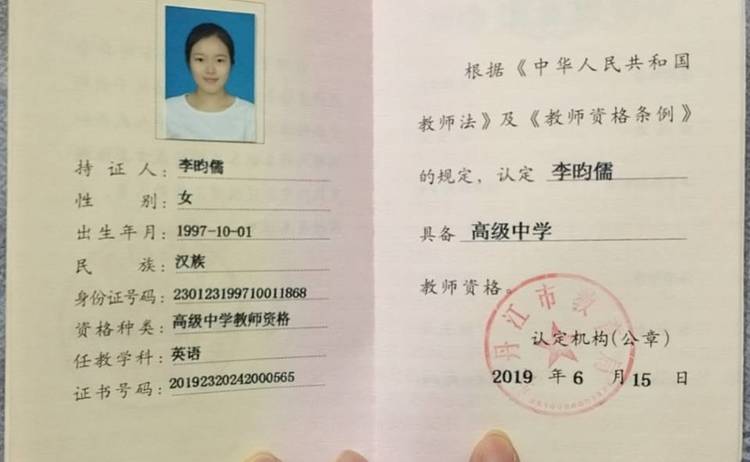 持证人：李昀儒
性别：女
出生年月：1997-10-01
民族：汉族
身份证号码：230123199710011868
资格种类：高级中学教师资格
任教学科：英语
证书号码：20192320242000565
根据《中华人民共和国
教师法》及《教师资格条例》
的规定，认定 李昀儒
具备 高级中学
教师资格。
丹江市教
认定机构(公章)
2019 年 6 月 15 日